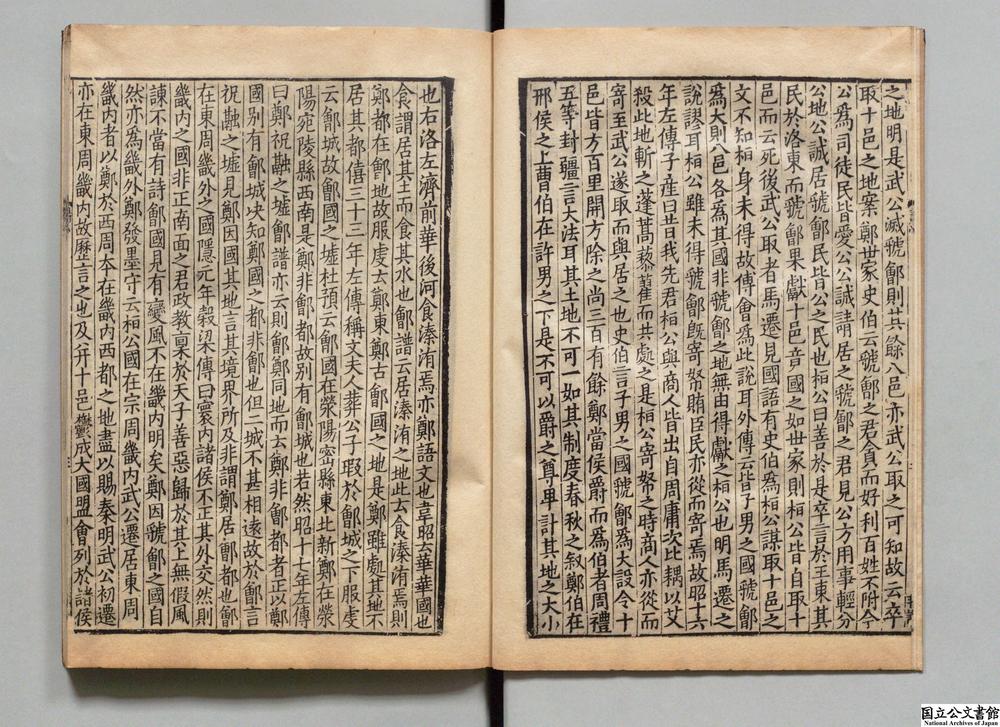 之地明是武公滅虢鄶則其餘八邑亦武公取之可知故云卒
取十邑之地案鄭世家史伯云虢鄶之君貪而好利百姓不附今
公為司徒民皆愛公公誠請居之虢鄶之君見公方用事輕分
公地公誠居虢鄶民皆公之民也桓公曰善於是卒言於王東其
民於洛東而虢鄶果獻十邑竟國之如世家則桓公皆自取十
邑而云死後武公取者馬遷見國語有史伯為桓公謀取十邑之
文不知桓身未得故傅會為此說耳外傳云皆子男之國虢鄶
為大則八邑各為其國非虢鄶之地無由得獻之桓公也明馬遷之
說謬耳桓公雖未得虢鄶既寄帑賄臣民亦從而寄焉故昭十六
年左傳子產曰昔我先君桓公與商人皆出自周庸次比耦以艾
殺此地斬之蓬蒿藜藋而共處之是桓公寄帑之時商人亦從而
寄至武公遂取而與居之也史伯言子男之國虢鄶為大設令十
邑皆方百里開方除之尚三百有餘鄭當侯爵而為伯者周禮
五等封疆言大法耳其土地不可一如其制度春秋之敘鄭伯在
邢侯之上曹伯在許男之下是不可以爵之尊卑計其地之大小
也右洛左濟前華後河食溱洧焉亦鄭語文也韋昭云華華國也
食謂居其土而食其水也鄶譜云居溱洧之地此云食溱洧焉則
鄭都在鄶地故服虔云鄭東鄭古鄶國之地是鄭雖處其地不
居其都僖三十三年左傳稱文夫人葬公子瑕於鄶城之下服虔
云鄶城故鄶國之墟杜預云鄶國在滎陽密縣東北新鄭在滎
陽宛陵縣西南是鄭非鄶都故別有鄶城也若然昭十七年左傳
曰鄭祝融之墟鄶譜亦云則鄶鄭同地而云鄭非鄶都者正以鄭
國別有鄶城决知鄭國之都非鄶也但二城不甚相遠故於鄶言
祝融之墟見鄭因國其地言其境界所及非謂鄭居鄶都也鄶
在東周畿外之國隱元年穀梁傳曰寰內諸侯不正其外交然則
畿內之國非正南面之君政教稟於天子善惡歸於其上無假風
諫不當有詩鄶國見有變風不在畿內明矣鄭因虢鄶之國自
然亦為畿外鄭發墨守云桓公國在宗周畿內武公遷居東周
畿內者以鄭於西周本在畿內西都之地盡以賜秦明武公初遷
亦在東周畿內故歷言之也及并十邑鬱成大國盟會列於諸侯
国立公文書館
National Archives of Japan